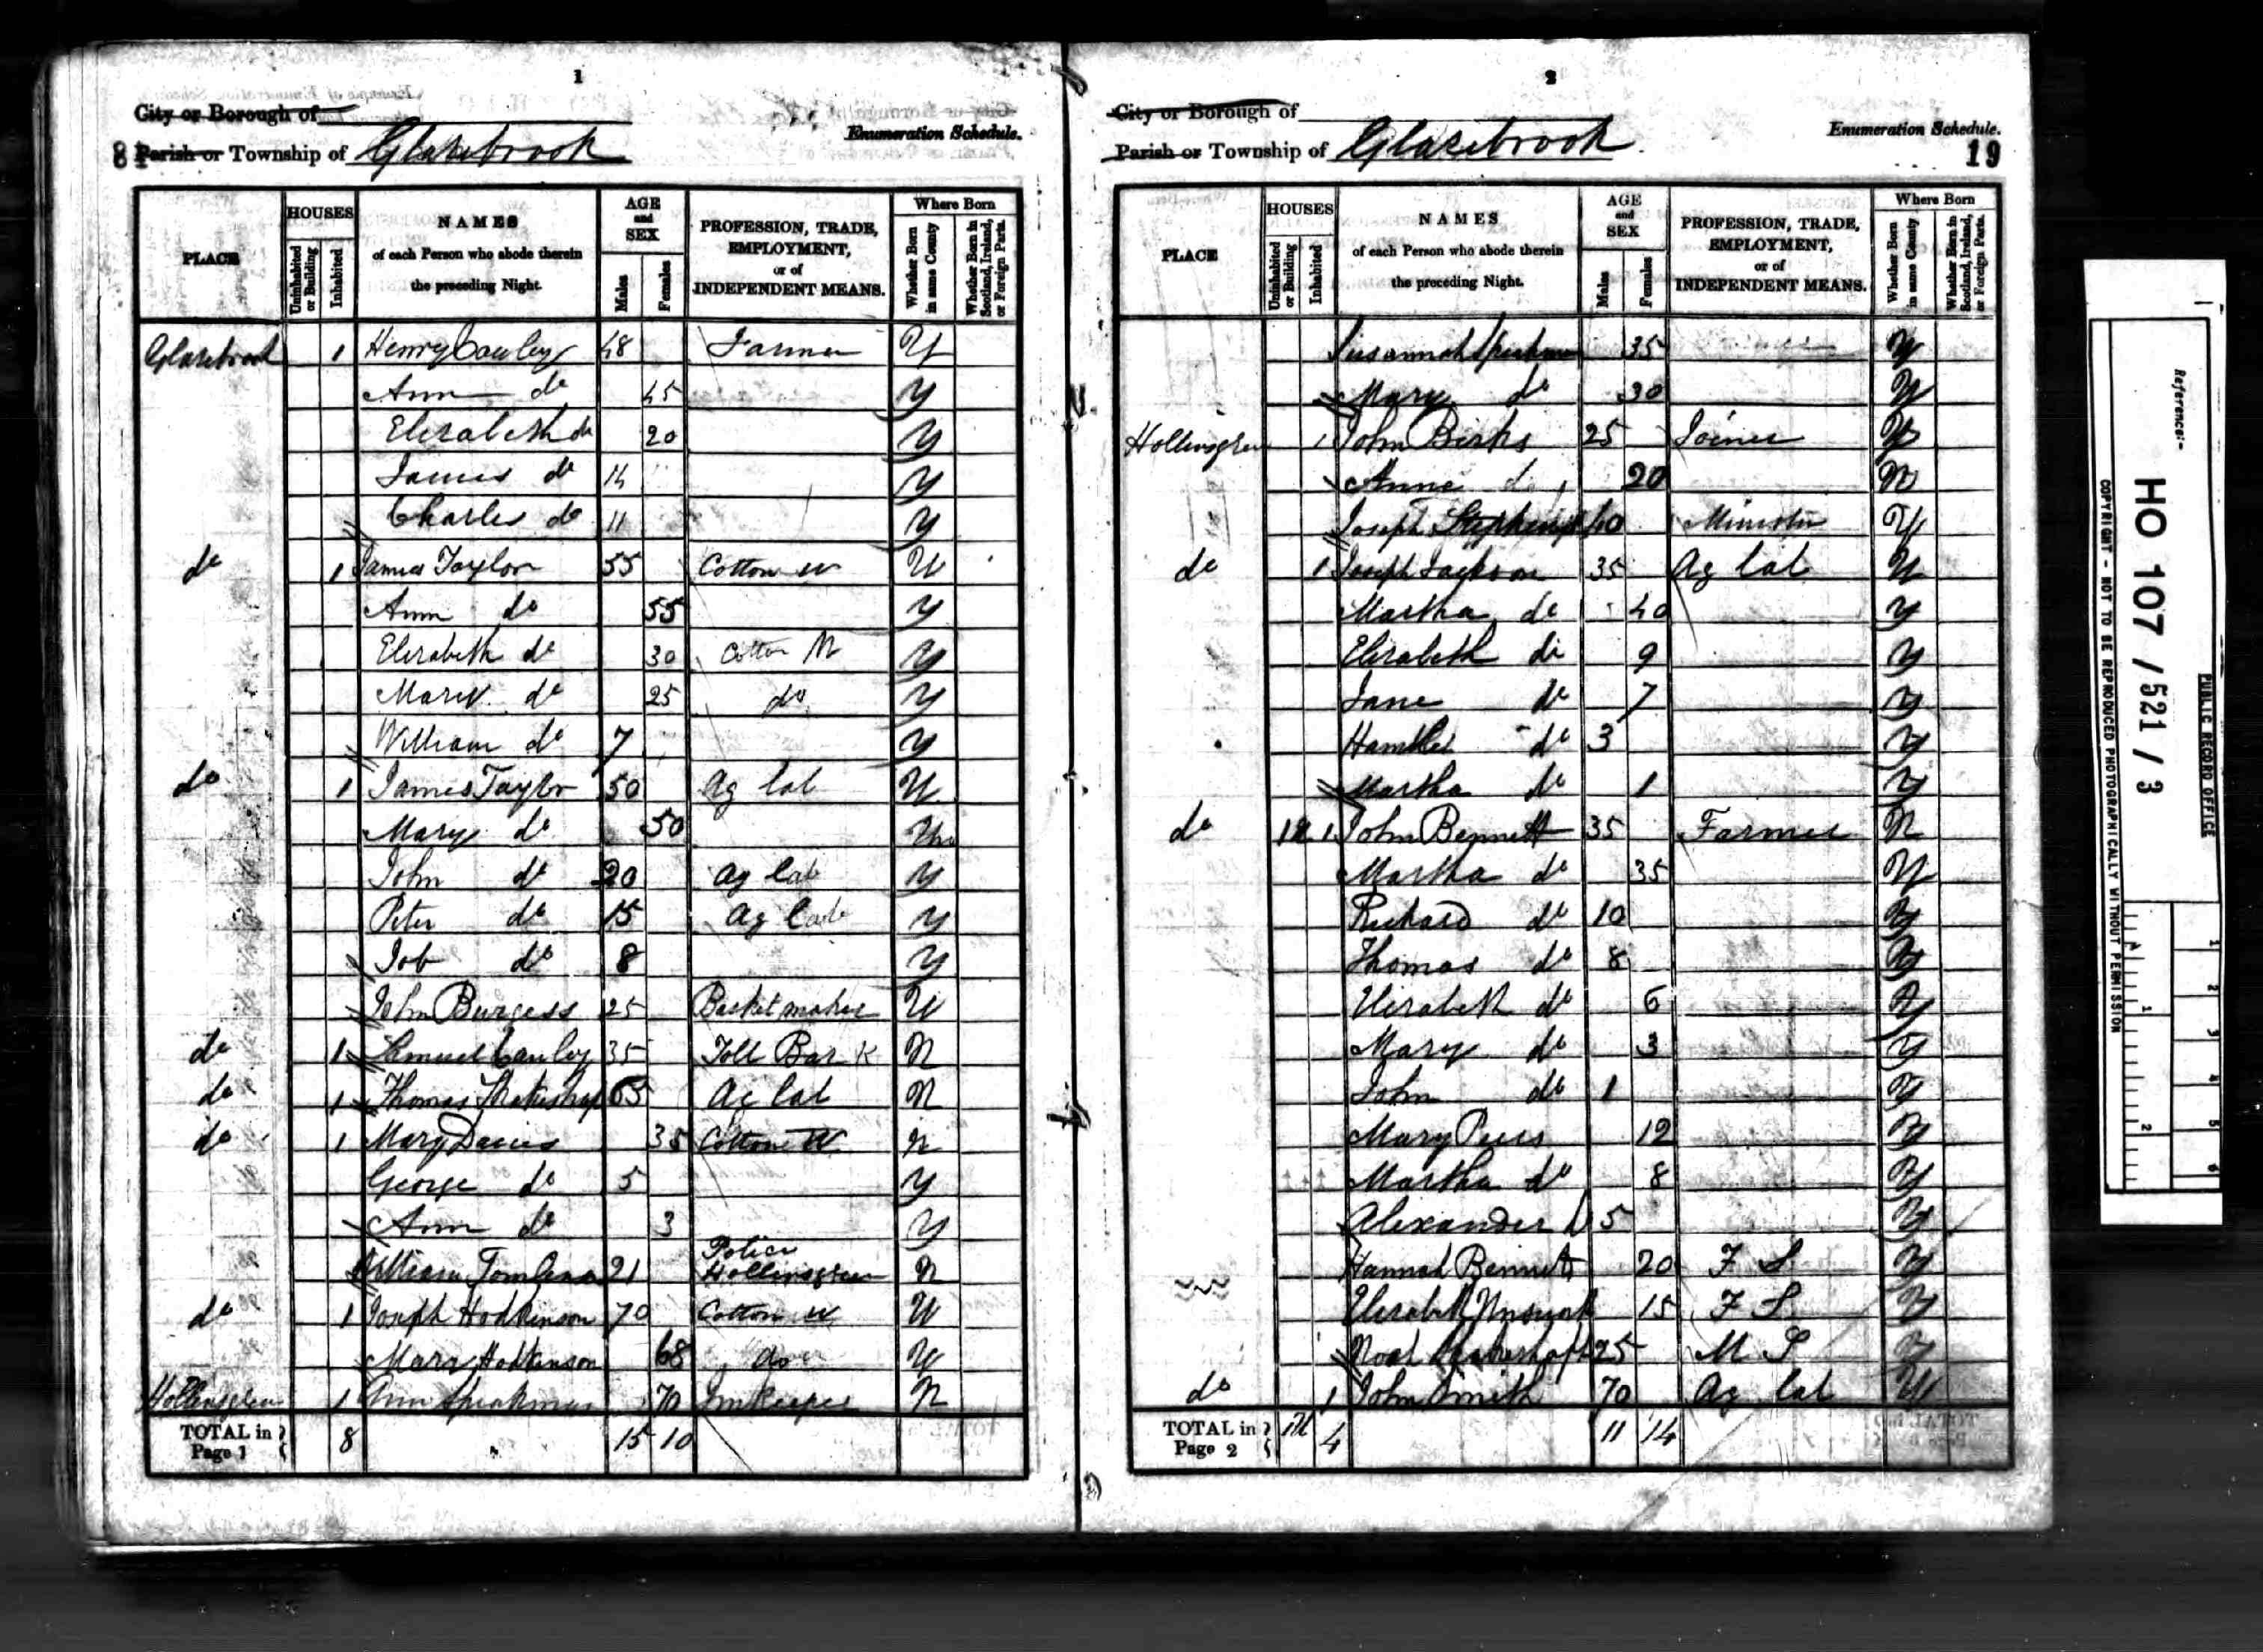 1
City or Borough of
Enumeration Schedule.
Parish or Township of Glazebrook
PLACE
HOUSES
Uninhabited or Building
Inhabited
NAMES
of each Person who abode therein
the preceding Night.
AGE
and
SEX
Males
Females
PROFESSION, TRADE,
EMPLOYMENT,
or of
INDEPENDENT MEANS.
Where Born
Whether Born in same County
Whether Born in Scotland, Ireland, or Foreign Parts.
Glazebrook 1 Henry Cawley 48 Farmer
Ann do 45 Y
Elizabeth do 20 Y
James do 14 Y
Charles do 11 Y
do 1 James Taylor 55 Cotton W
Ann do 55 Y
Elizabeth do 30 Cotton W Y
do 25 do Y
William do 7 Y
do 1 James Taylor 50 Ag lab
Mary do 50
John do 20 Ag Lab Y
Peter do 15 Ag Lab Y
Job do 8 Y
John Burgess 25 Basket maker
do 1 Samuel Cawley 35 Toll Bar K N
do 1 Thomas 65 Ag lab N
do 1 Mary Davies 35 Cotton W N
George do 5 Y
Ann do 3 Y
Police
William 21 Hollinsgreen N
do 1 Joseph Hodkinson 70 Cotton W
Mary Hodkinson 68 do
Hollinsgreen 1 Ann Speakman 70 Innkeeper N
TOTAL in Page 1 8 15 10
2
City or Borough of
Enumeration Schedule.
Parish or Township of Glazebrook
19
PLACE
HOUSES
Uninhabited or Building
Inhabited
NAMES
of each Person who abode therein
the preceding Night.
AGE
and
SEX
Males
Females
PROFESSION, TRADE,
EMPLOYMENT,
or of
INDEPENDENT MEANS.
Where Born
Whether Born in same County
Whether Born in Scotland, Ireland, or Foreign Parts.
Susannah 35 Y
Mary do 30 Y
1 John Birks 25 Joiner Y
Anne do 20 N
Joseph 40 Minister
do 1 Joseph Jackson 35 Ag lab
Martha do 40 Y
Elizabeth do 9 Y
Jane do 7 Y
Hamlet do 3 Y
Martha do 1 Y
do 1 John Bennett 35 Farmer N
Martha do 35 N
Richard do 10 Y
Thomas do 8 Y
Elizabeth do 6 Y
Mary do 3 Y
John do 1 Y
Mary 12 Y
Martha do 8 Y
Alexander 5 Y
Hannah Bennett 20 F S Y
Elizabeth 15 F S Y
Noah 25 M S Y
do 1 John Smith 70 Ag lab
TOTAL in Page 2 4 11 14
Reference:-
HO 107 / 521 / 3
PUBLIC RECORD OFFICE
COPYRIGHT - NOT TO BE REPRODUCED PHOTOGRAPHICALLY WITHOUT PERMISSION
1
2
1
2
3
4
5
6